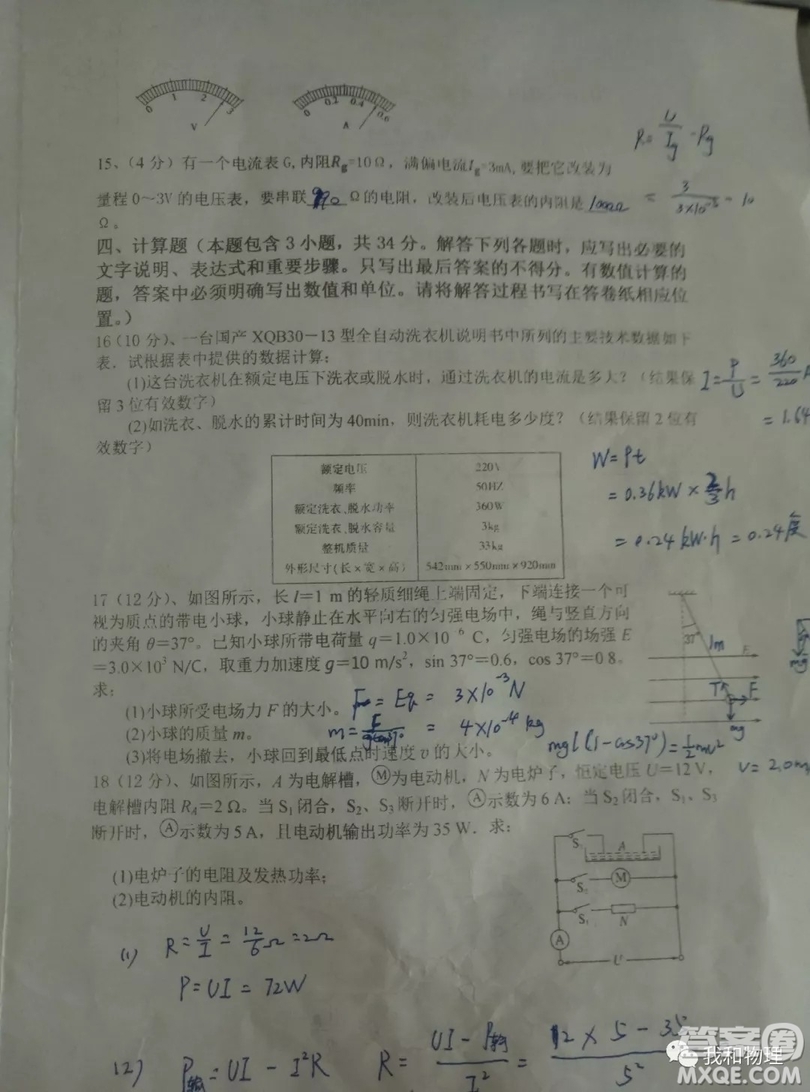 0 1 2 3
V
0 0.2 0.4 0.6
A
R= U/Ig - Rg
15、(4 分) 有一个电流表 G, 内阻Rg=10 Ω, 满偏电流Ig=3mA, 要把它改装为
量程 0～3V 的电压表, 要串联 990 Ω的电阻, 改装后电压表的内阻是 1000Ω
= 3/3×10⁻³ - 10
Ω。
四、计算题（本题包含 3 小题，共 34 分。解答下列各题时，应写出必要的
文字说明、表达式和重要步骤。只写出最后答案的不得分。有数值计算的
题，答案中必须明确写出数值和单位。请将解答过程书写在答卷纸相应位
置。）
16 (10 分)、一台国产 XQB30－13 型全自动洗衣机说明书中所列的主要技术数据如下
表．试根据表中提供的数据计算：
(1)这台洗衣机在额定电压下洗衣或脱水时，通过洗衣机的电流是多大？（结果保
留 3 位有效数字）
I= P/U = 360/220 A
= 1.64
(2)如洗衣、脱水的累计时间为 40min，则洗衣机耗电多少度？（结果保留 2 位有
效数字）
W= Pt
= 0.36kW × 2/3 h
= 0.24 kW·h = 0.24度
额定电压 220V
频率 50HZ
额定洗衣、脱水功率 360W
额定洗衣、脱水容量 3kg
整机质量 33kg
外形尺寸(长×宽×高) 542mm×550mm×920mm
17 (12 分)、如图所示，长 l=1 m 的轻质细绳上端固定，下端连接一个可
视为质点的带电小球，小球静止在水平向右的匀强电场中，绳与竖直方向
的夹角 θ=37°。已知小球所带电荷量 q=1.0×10⁻⁶ C，匀强电场的场强 E
=3.0×10³ N/C，取重力加速度 g=10 m/s²，sin 37°=0.6，cos 37°=0.8。
求：
(1)小球所受电场力 F 的大小。
F = Eq = 3×10⁻³ N
(2)小球的质量 m。
= 4×10⁻⁴ kg
(3)将电场撤去，小球回到最低点时速度 v 的大小。
mgl(1-cos37°)=½mv²
v= 2.0m
37°
1m
E
T
F
mg
mg
18 (12 分)、如图所示，A 为电解槽，Ⓜ为电动机，N 为电炉子，恒定电压 U=12 V，
电解槽内阻 RA=2 Ω。当 S₁闭合，S₂、S₃断开时，Ⓐ示数为 6 A；当 S₂闭合，S₁、S₃
断开时，Ⓐ示数为 5 A，且电动机输出功率为 35 W．求：
(1)电炉子的电阻及发热功率；
(2)电动机的内阻。
S
A
S
M
S
N
A
U
(1) R= U/I = 12/6 Ω =2Ω
P=UI = 72W
(2) P输 = UI - I²R R= UI - P输/I² = 12×5-35/5²
答案圈
我和物理
MXQE.COM